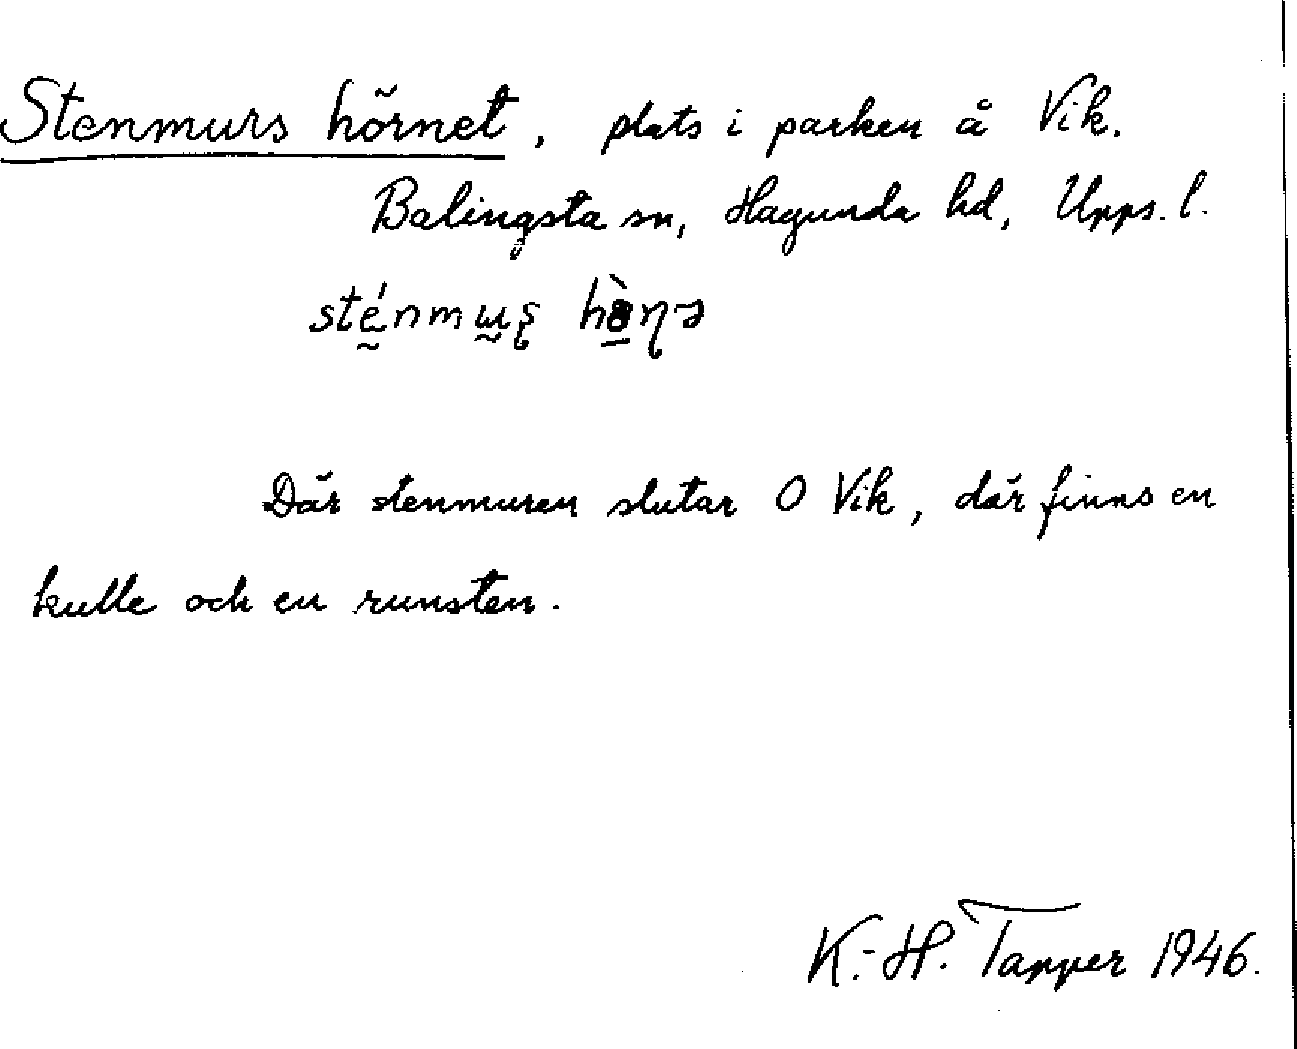 Stenmurs hörnet, plats i parken å Vik.
Balingsta sn, Hagunda hd, Upps. l.
sténmɯʂ hòɳə
Där stenmuren slutar O Vik, där finns en
kulle och en runsten.
K.-H. Tapper 1946.